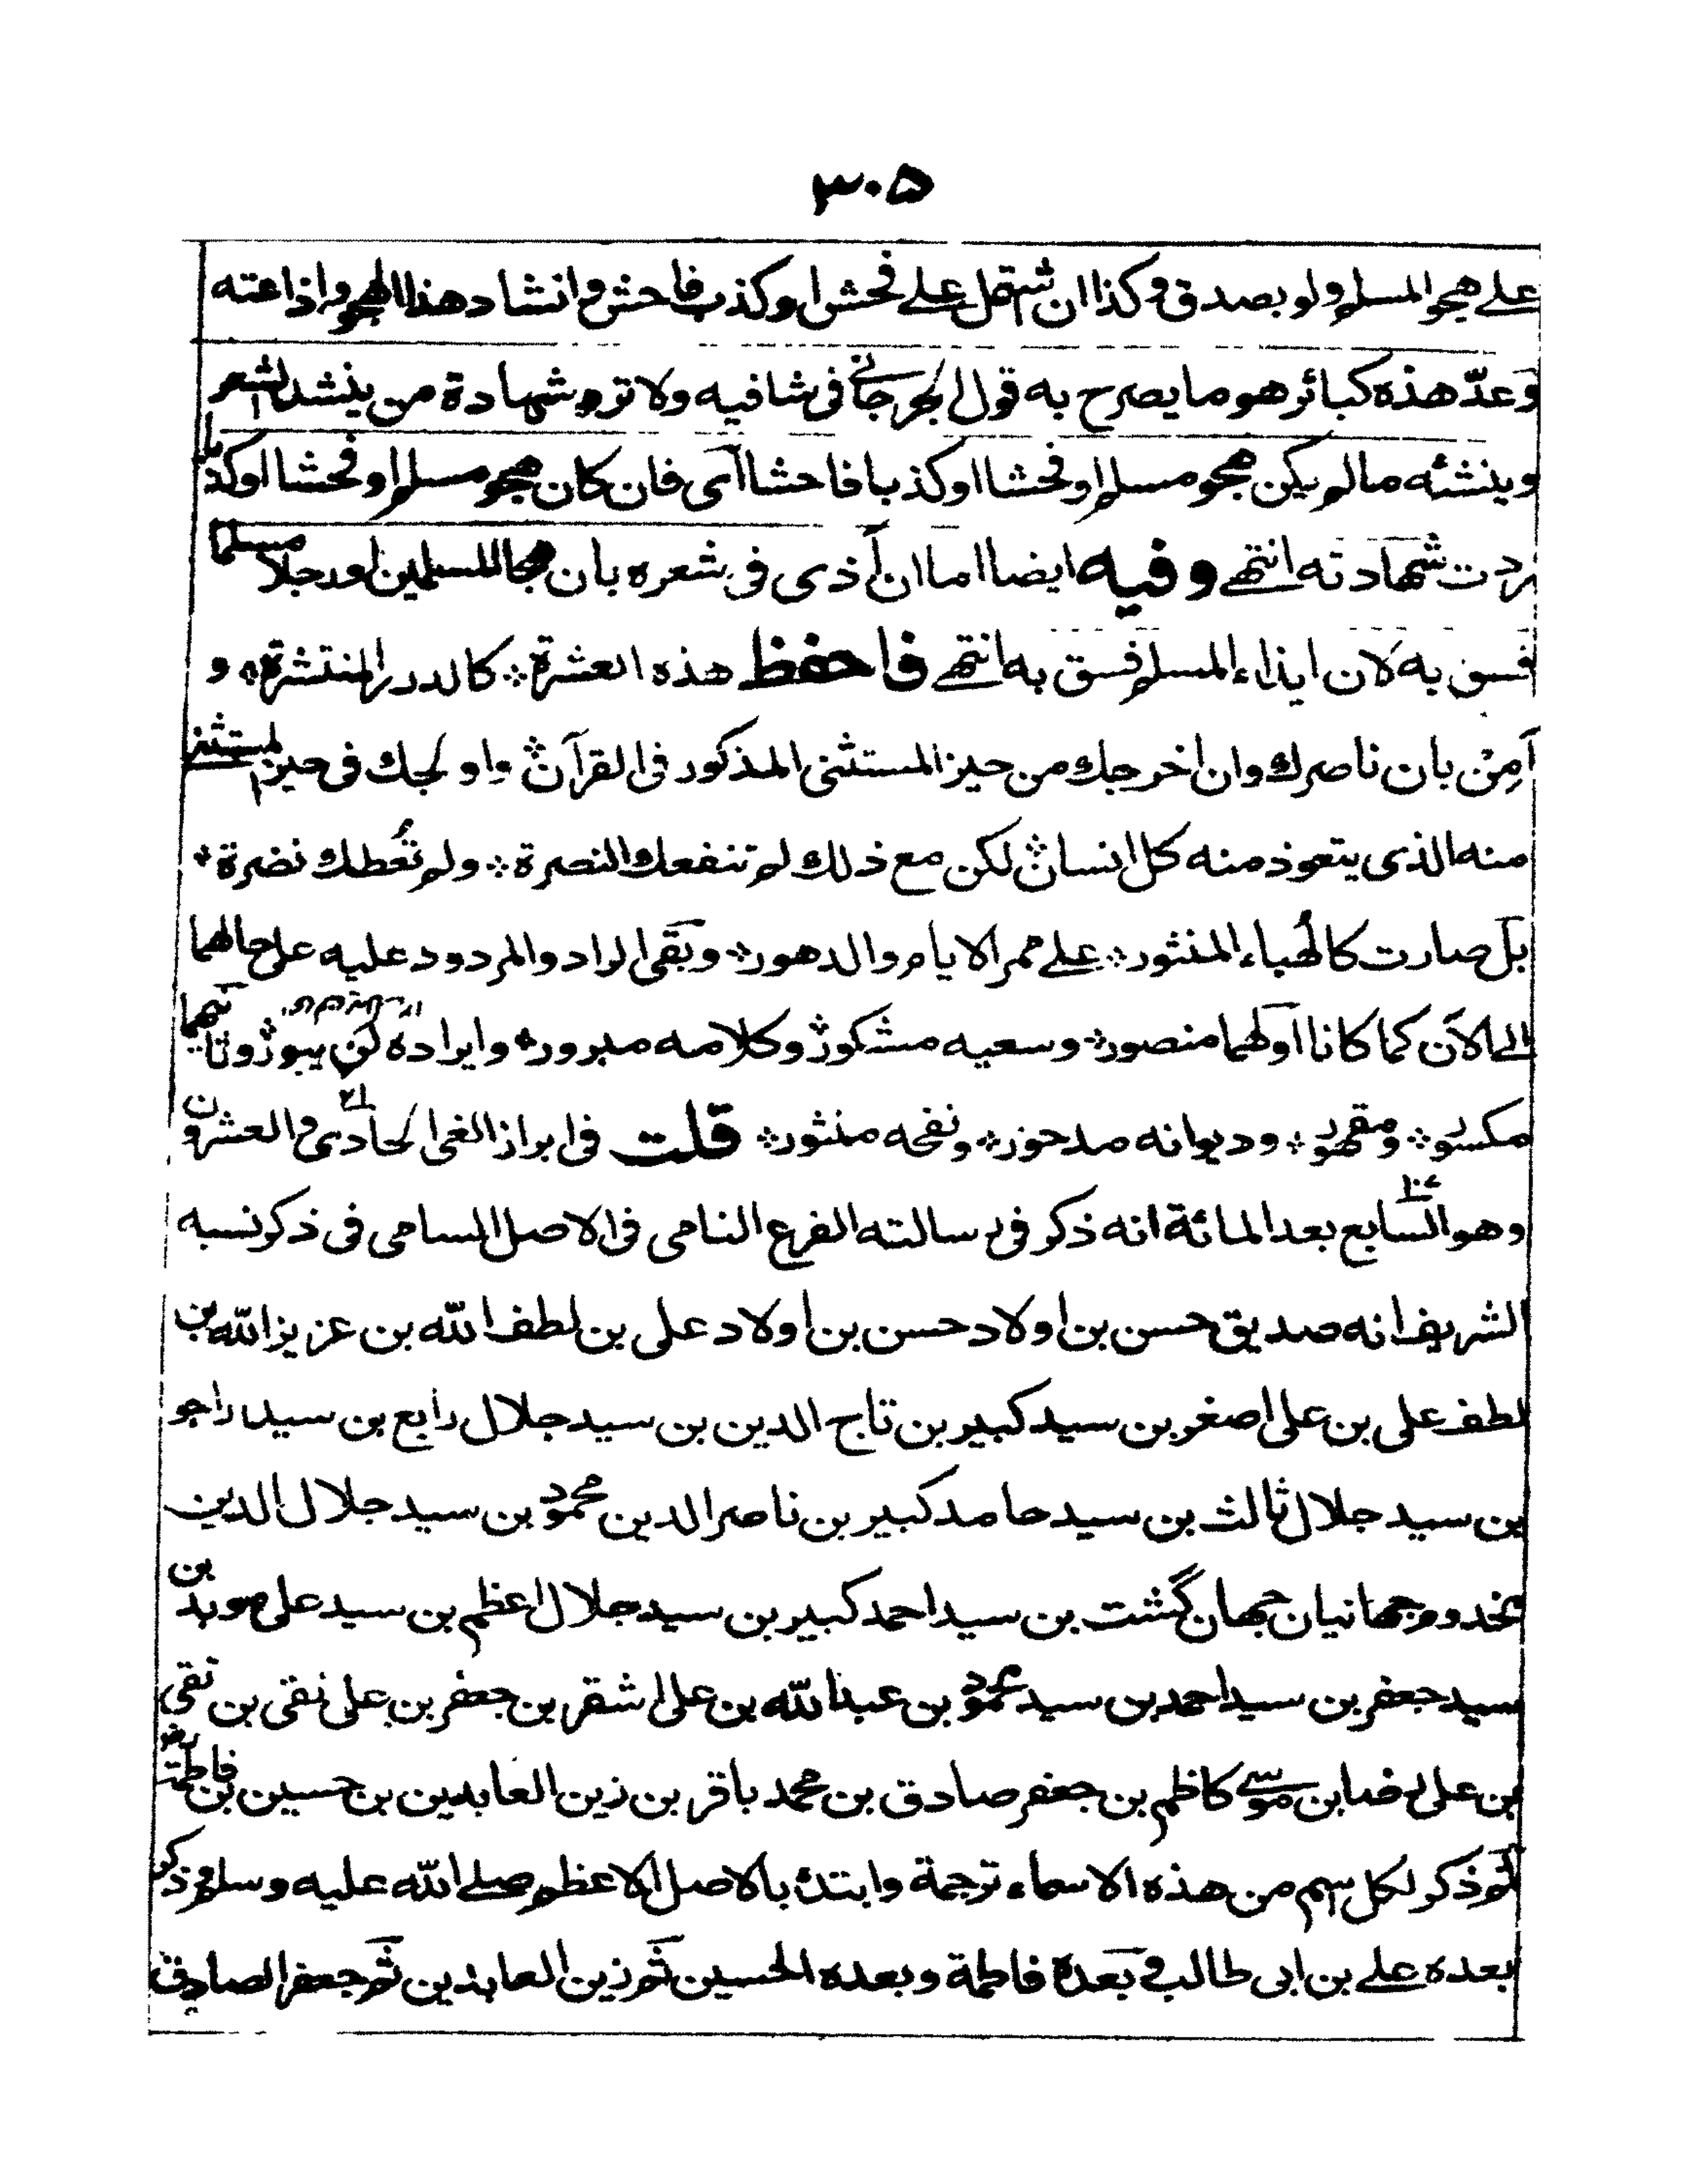 ٣٠۵
على هجو المسلم ولو بصدق وكذا ان اشتمل على فحش او كذب فاحش وانشاد هذا الهجو واذاعته
وعدّ هذه كبائر هو ما يصرح به قول الجرجانى فى شافيه ولا ترد شهادة من ينشد الشعر
وينشئه مالم يكن هجو مسلم او فحشا او كذبا فاحشا اى فان كان هجو مسلم او فحشا او كذبا
ردت شهادته انتهى وفيه ايضا اما ان آذى فى شعره بان هجا المسلمين او رجلا مسلما
فسق به لان ايذاء المسلم فسق به انتهى فاحفظ هذه العشرة ۞ كالدرر المنتشرة ۞ و
آمِنْ بان ناصرك وان اخرجك من حيز المستثنى المذكور فى القرآن ۞ واولجك فى حيز المستثنى
منه الذى يتعوذ منه كل انسان ۞ لكن مع ذلك لم تنفعك النصرة ۞ ولم تُعطك نضرة ۞
بل صارت كالهُباء المنثور ۞ على ممر الايام والدهور ۞ وبقى الراد والمردود عليه على حالهما
الى الآن كما كانا اولهما منصور ۞ وسعيه مشكور ۞ وكلامه مبرور ۞ وايراده لن يبور ۞ وثانيهما
مكسور ۞ ومقهور ۞ وديوانه مدحور ۞ ونفحه منثور ۞ قلت فى ابراز الغى الحادى والعشرون
وهو السابع بعد المائة انه ذكر فى رسالته الفرع النامى فى الاصل السامى فى ذكر نسبه
الشريف انه صديق حسن بن اولاد حسن بن اولاد على بن لطف الله بن عزيز الله بن
لطف على بن على اصغر بن سيد كبير بن تاج الدين بن سيد جلال رابع بن سيد راجو
بن سيد جلال ثالث بن سيد حامد كبير بن ناصر الدين محمود بن سيد جلال الدين
مخدوم جهانيان جهان گشت بن سيد احمد كبير بن سيد جلال اعظم بن سيد على مويد بن
سيد جعفر بن سيد احمد بن سيد محمود بن عبد الله بن على اشقر بن جعفر بن على نقى بن تقى
بن على رضا بن موسى كاظم بن جعفر صادق بن محمد باقر بن زين العابدين بن حسين بن فاطمة رض
ثم ذكر لكل اسم من هذه الاسماء ترجمة وابتدئ بالاصل الاعظم صلى الله عليه وسلم ثم ذكر
بعده على بن ابى طالب وبعدة فاطمة وبعده الحسين ثم زين العابدين ثم جعفر الصادق